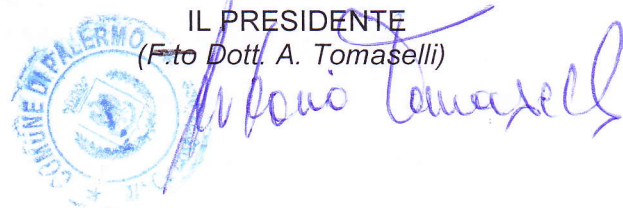 IL PRESIDENTE
(F.to Dott. A. Tomaselli)
COMUNE DI PALERMO
Antonio Tomaselli